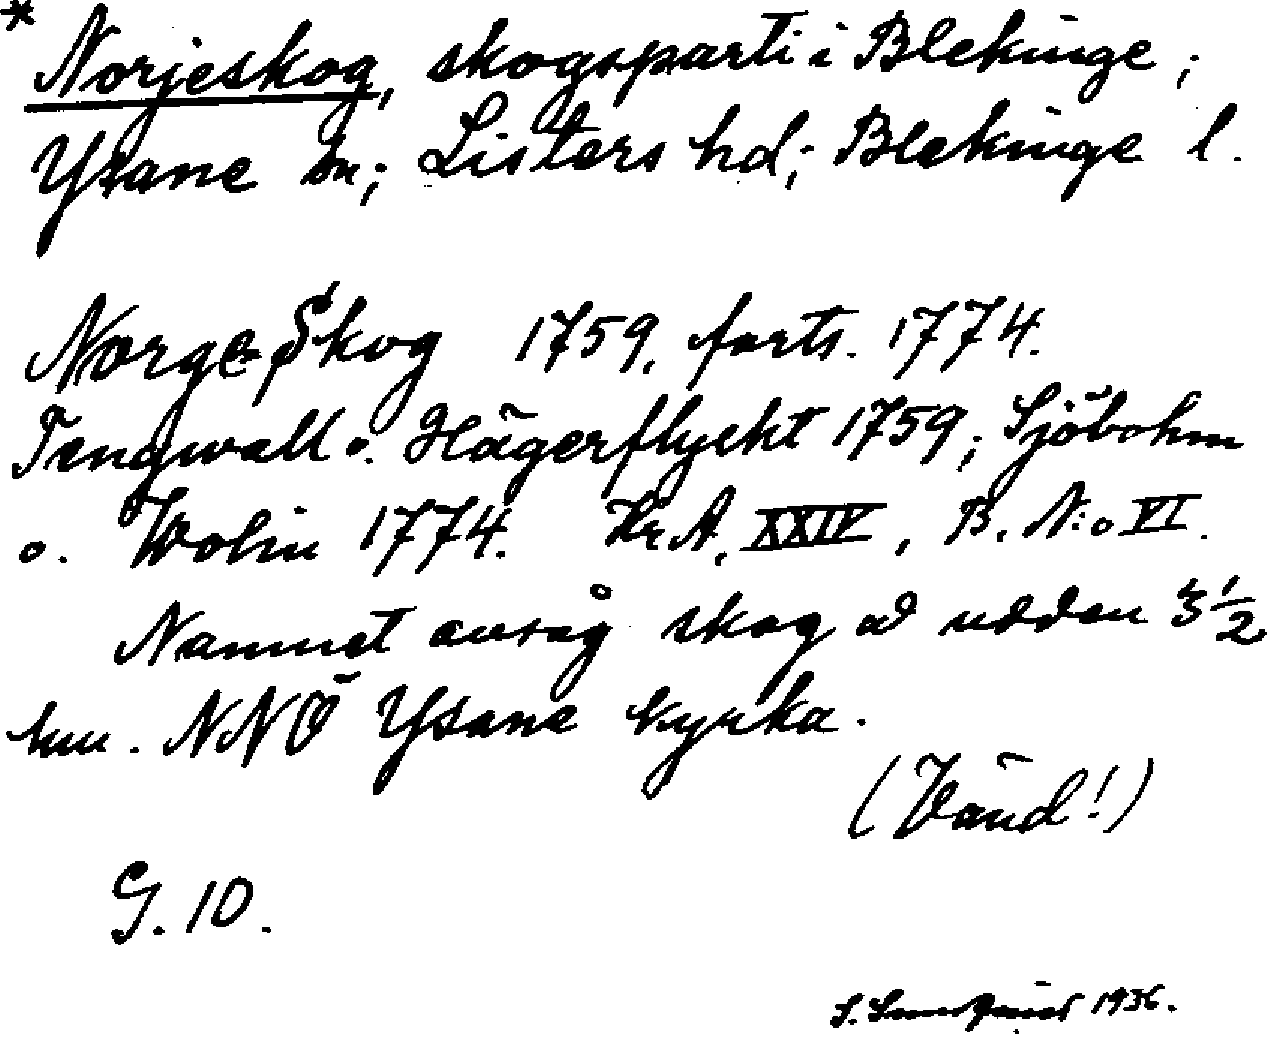 * Norjeskog, skogsparti i Blekinge;
Ysane sn; Listers hd; Blekinge l.
Norge Skog 1759, forts. 1774.
Tengwall o. Hägerflyckt 1759; Sjöbohm
o. Wolin 1774. Kr.A. XXIV, B. N:o VI.
Namnet avsåg skog å udden 3 1/2
km. NNÖ Ysane kyrka.
(Vänd!)
G. 10.
S. 1936.